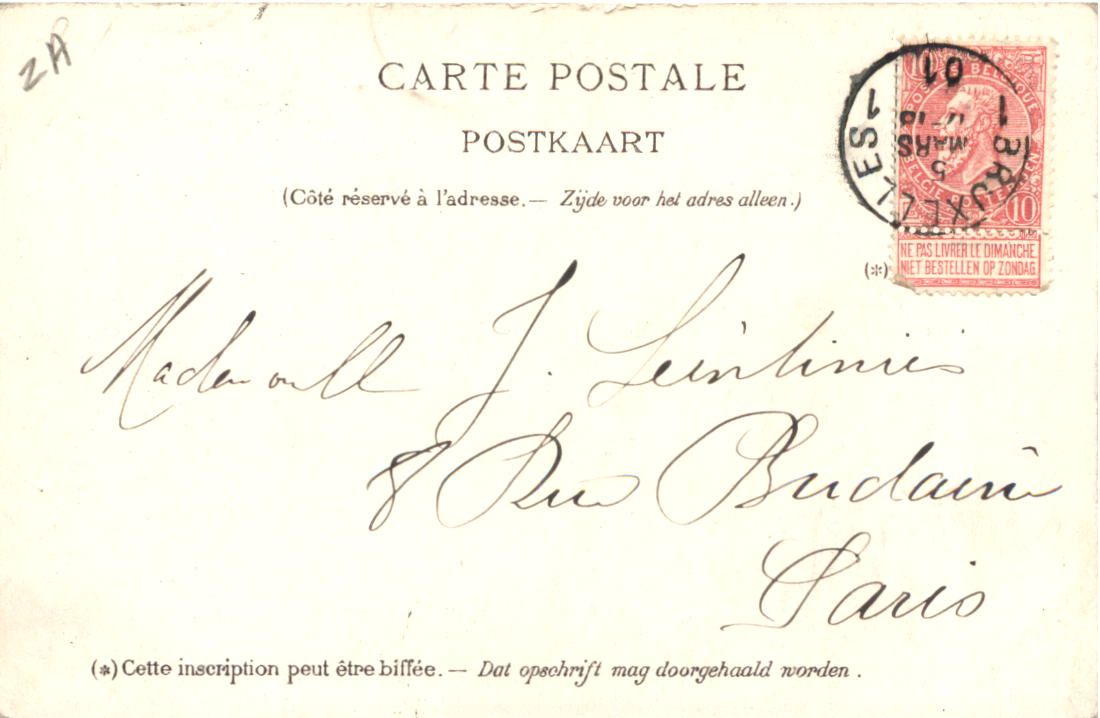 ZA
CARTE POSTALE
POSTKAART
(Côté réservé à l'adresse.— Zijde voor het adres alleen.)
10
POSTES BELGIQUE
BELGIE POSTERIJEN 10
NE PAS LIVRER LE DIMANCHE.
NIET BESTELLEN OP ZONDAG
BRUXELLES 1
1
5
MARS
01
(*)
J.
8 Rue
Paris
(*) Cette inscription peut être biffée. — Dat opschrift mag doorgehaald worden .